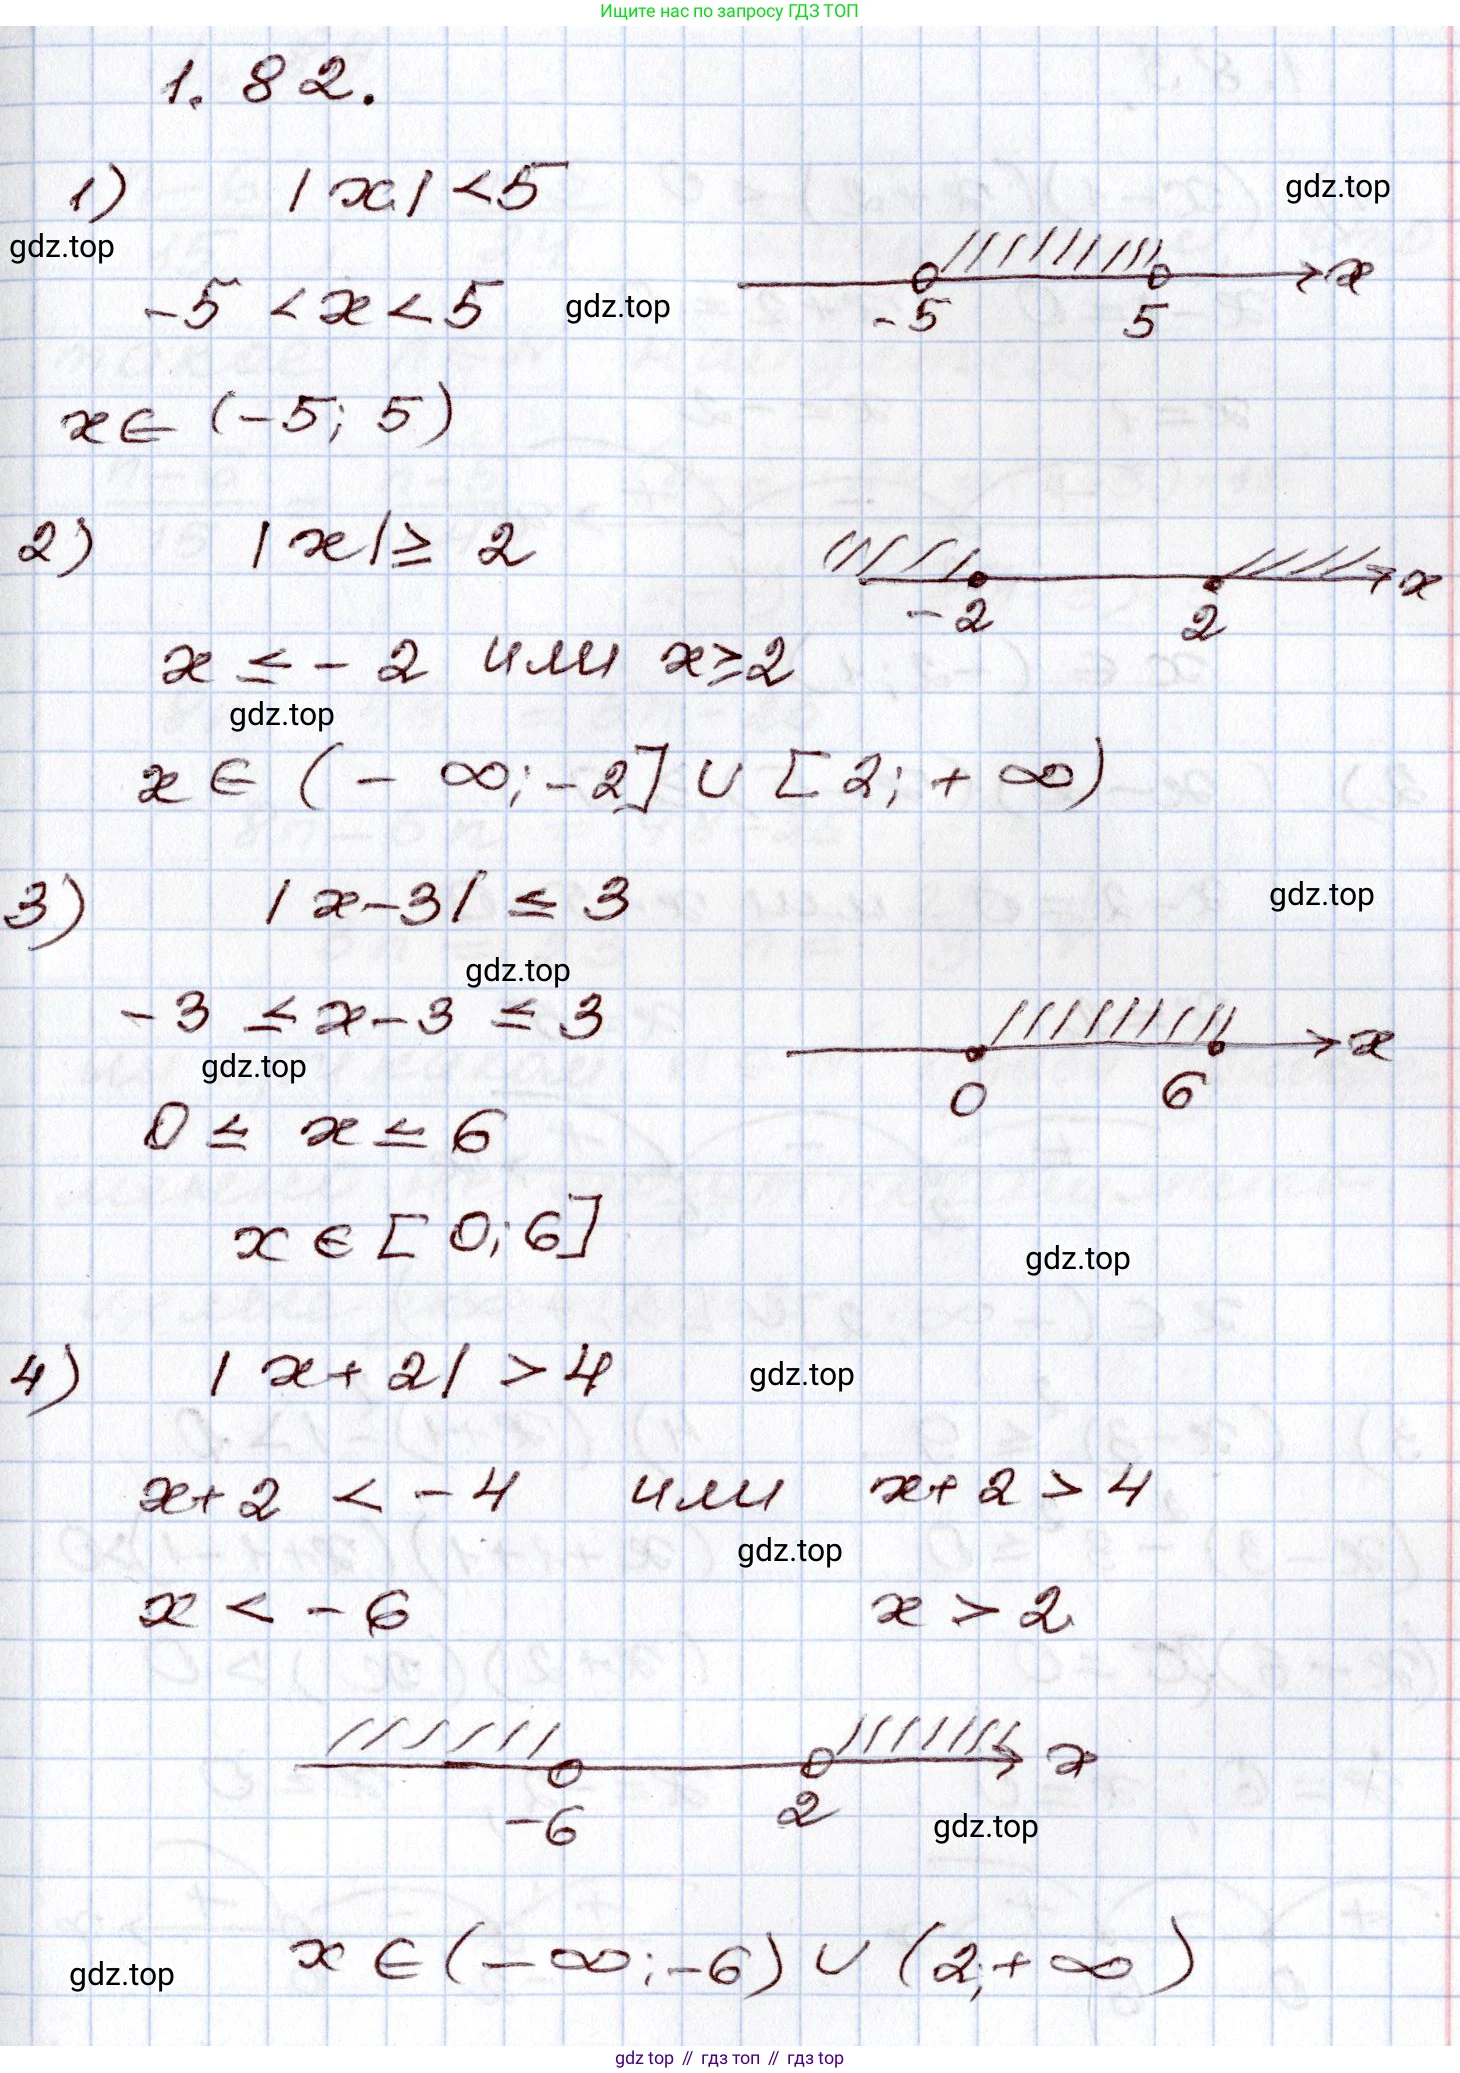 Ищите нас по запросу ГДЗ ТОП
1.82.
1) |x| < 5
gdz.top
gdz.top
-5 < x < 5
gdz.top
-5 5 x
x ∈ (-5; 5)
2) |x| ≥ 2
-2 2 x
x ≤ -2 или x ≥ 2
gdz.top
x ∈ (-∞; -2] ∪ [2; +∞)
3) |x-3| ≤ 3
gdz.top
gdz.top
-3 ≤ x-3 ≤ 3
gdz.top
0 6 x
0 ≤ x ≤ 6
x ∈ [0; 6]
gdz.top
4) |x+2| > 4
gdz.top
x+2 < -4 или x+2 > 4
gdz.top
x < -6 x > 2
-6 2 x
gdz.top
x ∈ (-∞; -6) ∪ (2; +∞)
gdz.top
gdz top // гдз топ // гдз top